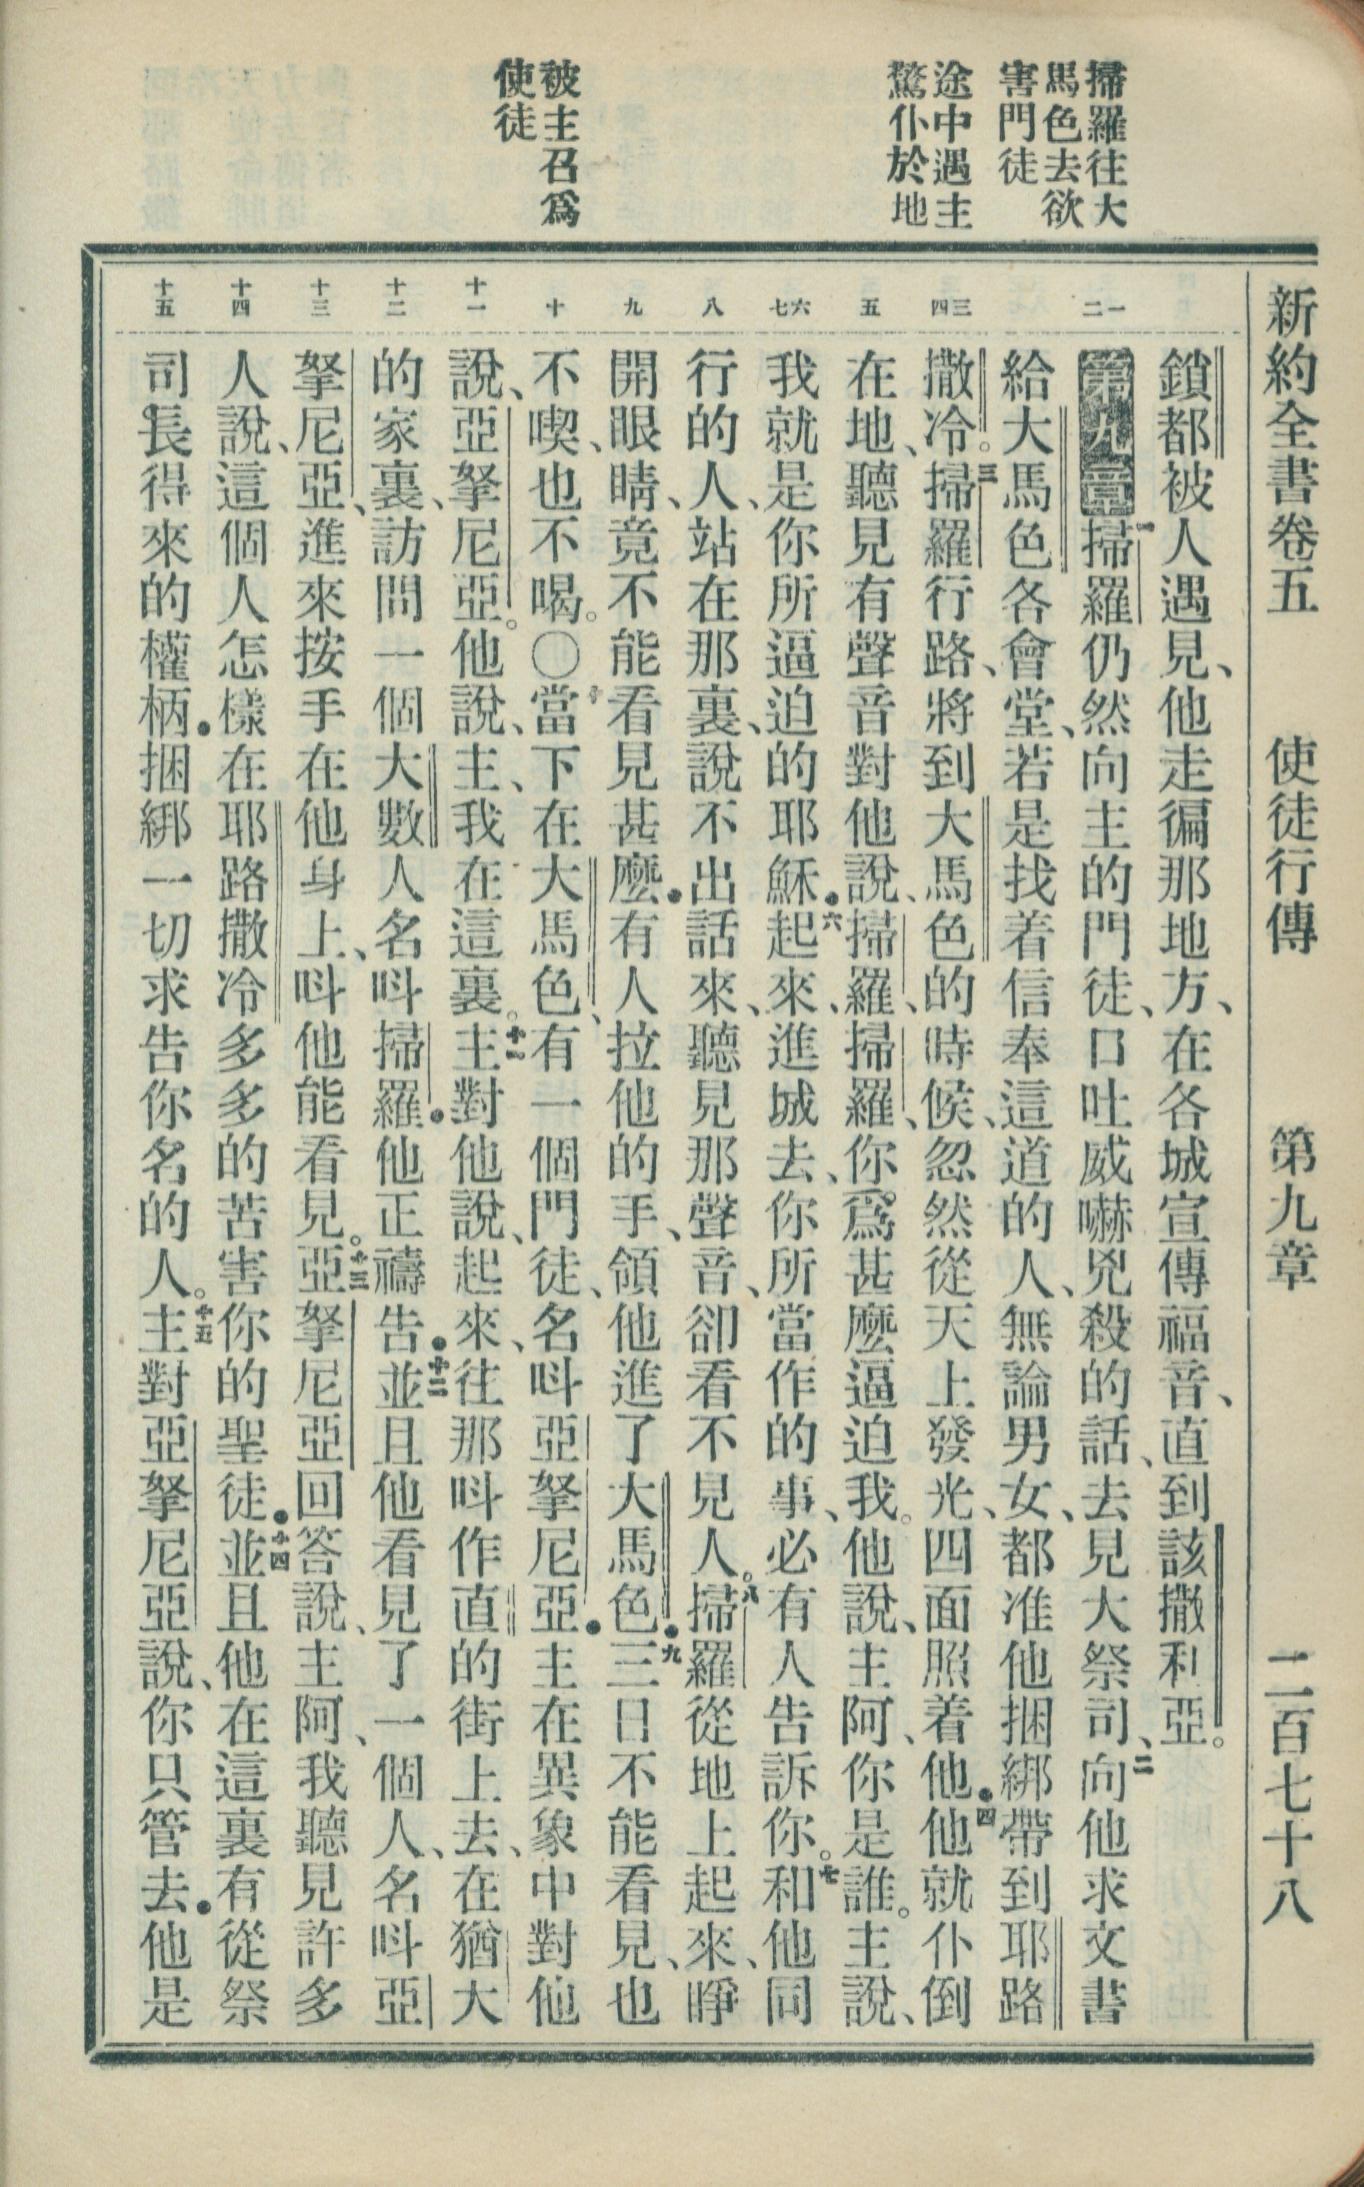 新約全書卷五　使徒行傳　第九章　二百七十八
掃羅往大
馬色去欲
害門徒
途中遇主
驚仆於地
被主召爲
使徒
一
二
三
四
五
六
七
八
九
十
十一
十二
十三
十四
十五
鎖都被人遇見、他走徧那地方、在各城宣傳福音、直到該撒利亞。
第九章 一掃羅仍然向主的門徒、口吐威嚇兇殺的話、去見大祭司、二向他求文書
給大馬色各會堂、若是找着信奉這道的人、無論男女、都准他捆綁帶到耶路
撒冷。三掃羅行路、將到大馬色的時候、忽然從天上發光、四面照着他・四他就仆倒
在地、聽見有聲音對他說、掃羅、掃羅、你爲甚麼逼迫我。他說、主阿、你是誰。主說、
我就是你所逼迫的耶穌・六起來、進城去、你所當作的事、必有人告訴你。七和他同
行的人、站在那裏、說不出話來、聽見那聲音、卻看不見人。八掃羅從地上起來、睜
開眼睛、竟不能看見甚麼・有人拉他的手、領他進了大馬色・九三日不能看見、也
不喫、也不喝。〇十當下在大馬色、有一個門徒、名呌亞拏尼亞・主在異象中對他
說、亞拏尼亞。他說、主、我在這裏。十一主對他說、起來、往那呌作直的街上去、在猶大
的家裏、訪問一個大數人名呌掃羅・他正禱告・十二並且他看見了一個人、名呌亞
拏尼亞、進來按手在他身上、呌他能看見。十三亞拏尼亞回答說、主阿、我聽見許多
人說、這個人怎樣在耶路撒冷多多的苦害你的聖徒・十四並且他在這裏有從祭
司長得來的權柄・捆綁一切求告你名的人。十五主對亞拏尼亞說、你只管去・他是